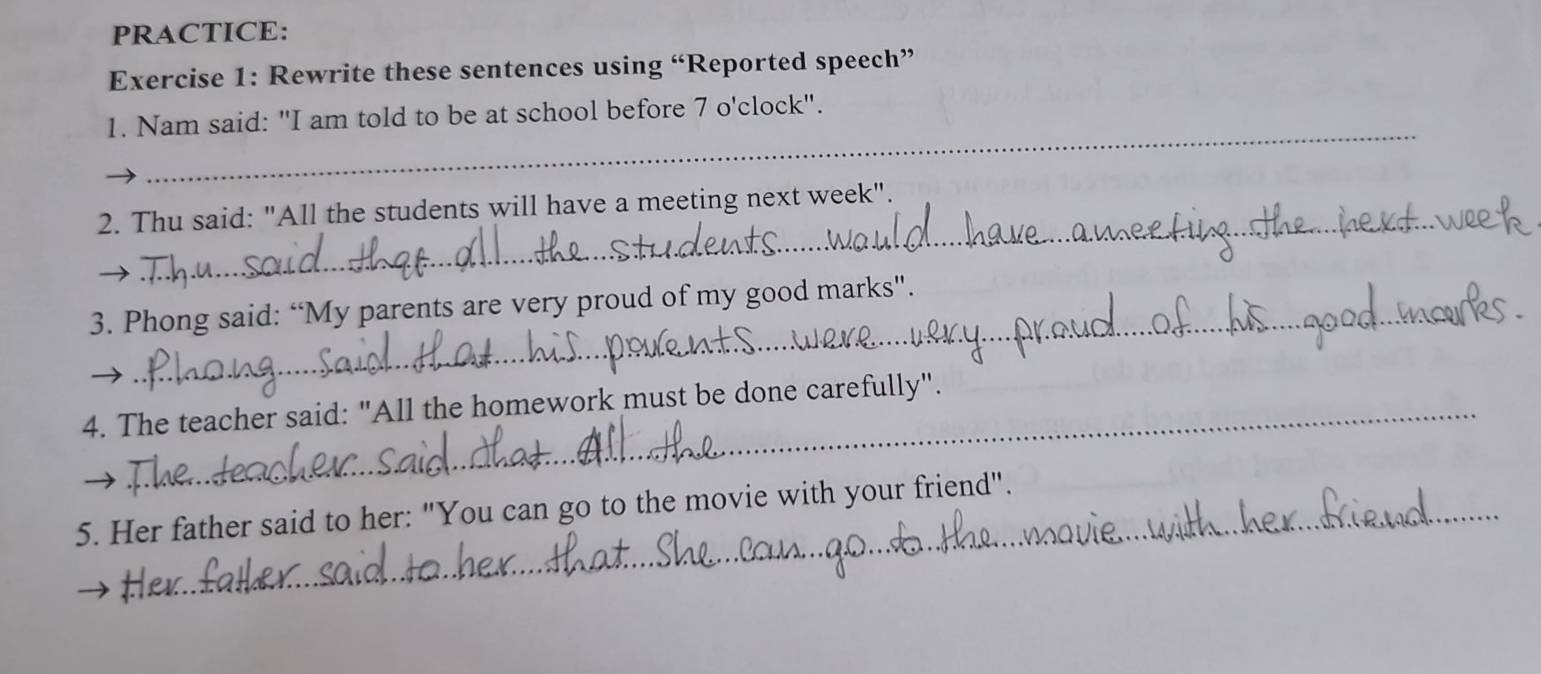 PRACTICE:
Exercise 1: Rewrite these sentences using “Reported speech”
1. Nam said: "I am told to be at school before 7 o'clock".
→
2. Thu said: "All the students will have a meeting next week".
→ Thu said that all the students would have a meeting the next week
3. Phong said: “My parents are very proud of my good marks".
→ Phong said that his parents were very proud of his good marks.
4. The teacher said: "All the homework must be done carefully".
→ The teacher said that All the
5. Her father said to her: "You can go to the movie with your friend".
→ Her father said to her that She can go to the movie with her friend